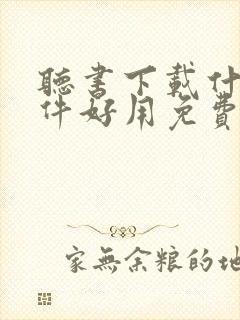 聽書下載什
件好用免費
家無余粮的地